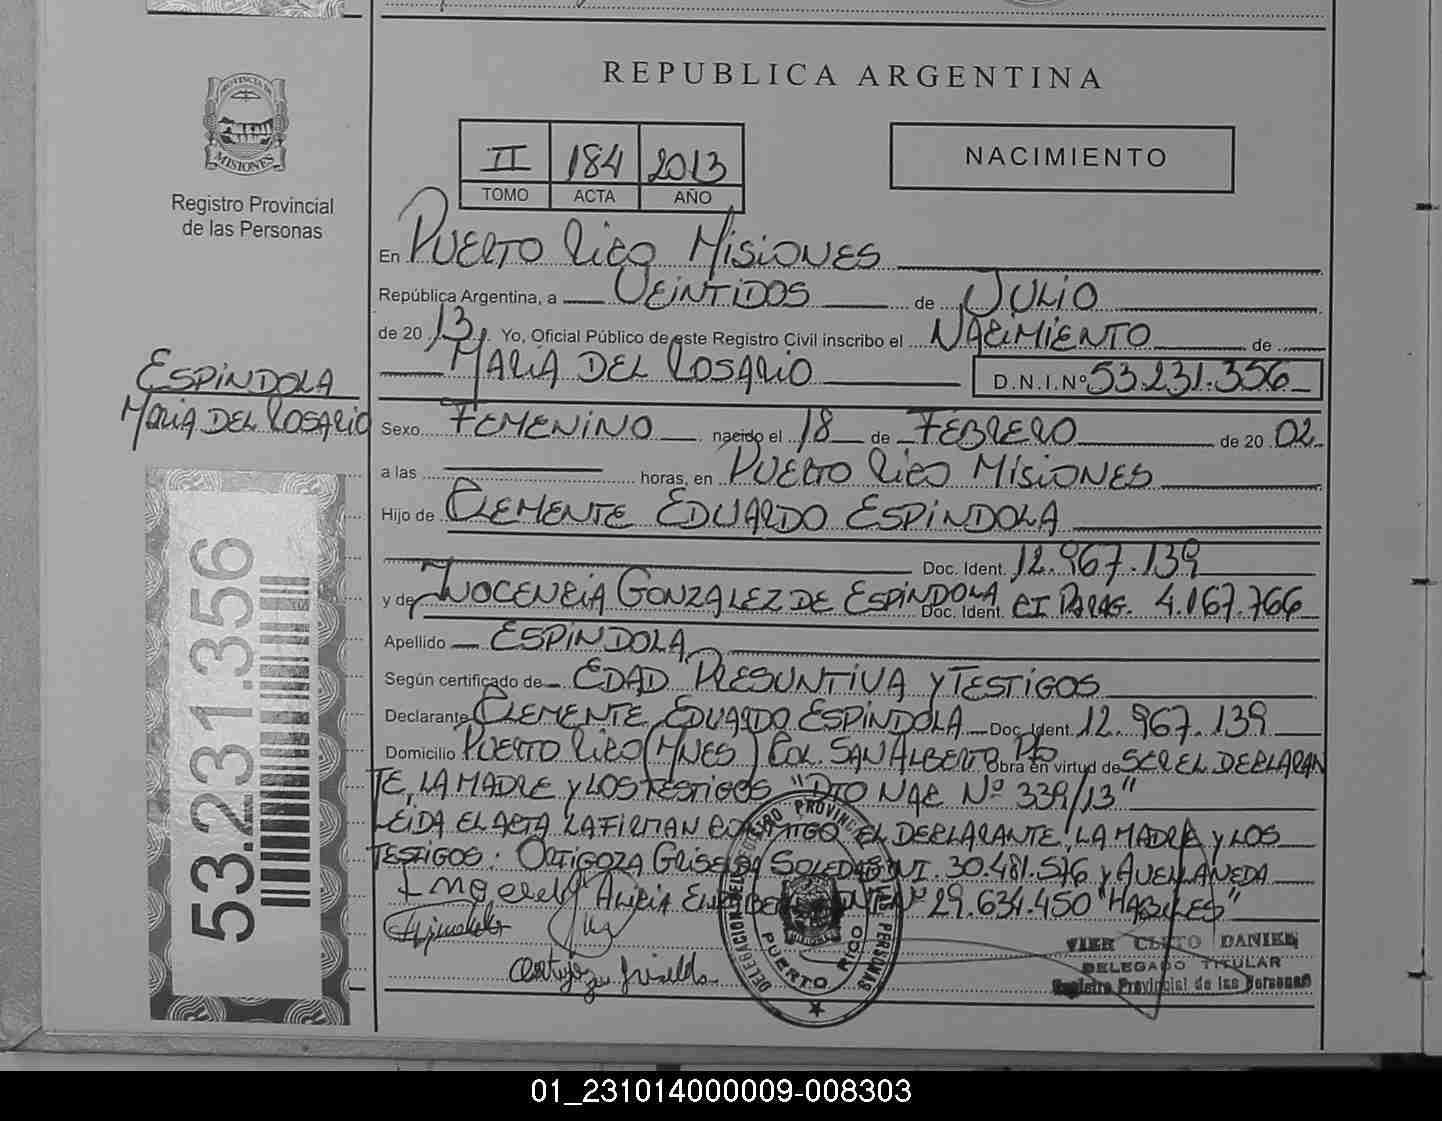 REPUBLICA ARGENTINA
PROVINCIA DE
MISIONES
Registro Provincial
de las Personas
II 184 2013
TOMO ACTA AÑO
NACIMIENTO
En PUERTO RICO MISIONES
República Argentina, a VEINTIDOS de JULIO
de 20 13. Yo, Oficial Público de este Registro Civil inscribo el NACIMIENTO de
MARIA DEL ROSARIO D.N.I.Nº 53.231.356
ESPINDOLA
MARIA DEL ROSARIO
Sexo FEMENINO nacido el 18 de FEBRERO de 20 02
a las horas, en PUERTO RICO MISIONES
Hijo de CLEMENTE EDUARDO ESPINDOLA
Doc. Ident. 12.967.139
y de INOCENCIA GONZALEZ DE ESPINDOLA Doc. Ident. CI PARAG. 4.167.766
Apellido ESPINDOLA
Según certificado de EDAD PRESUNTIVA Y TESTIGOS
Declarante CLEMENTE EDUARDO ESPINDOLA Doc. Ident. 12.967.139
Domicilio PUERTO RICO (MNES) COL. SAN ALBERTO Pto Obra en virtud de SER EL DECLARAN
TE, LA MADRE Y LOS TESTIGOS "DTO NAC Nº 339/13"
LEIDA EL ACTA LA FIRMAN CONMIGO EL DECLARANTE, LA MADRE Y LOS
TESTIGOS: ORTIGOZA GRISELDA SOLEDAD DNI. 30.481.576 Y AVELLANEDA
ALICIA Nº 29.634.450 "HABILES"
53.231.356
DELEGACION DEL REGISTRO PROVINCIAL DE LAS PERSONAS
PUERTO RICO
VIER CLETO DANIEL
DELEGADO TITULAR
Registro Provincial de las Personas
01_231014000009-008303